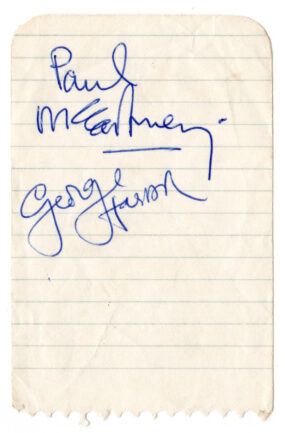 Paul
McCartney
George
Harrison